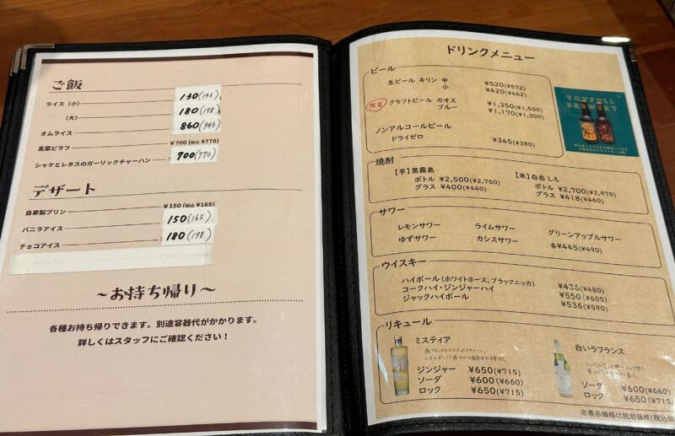 ご飯
ライス (小) 130(143)
(大) 180(198)
オムライス 860(946)
高菜ピラフ ¥700 (tax ¥770)
シャケとレタスのガーリックチャーハン 700(770)
デザート
自家製プリン ¥150 (tax ¥165)
バニラアイス 150(165)
チョコアイス 180(198)
～お持ち帰り～
各種お持ち帰りできます。別途容器代がかかります。
詳しくはスタッフにご確認ください！
ドリンクメニュー
ビール
生ビール キリン 中 ¥520(572)
小 ¥420(462)
限定 クラフトビール カオス ¥1,350(1,500)
ブルー ¥1,170(1,300)
ノンアルコールビール
ドライゼロ ¥345(380)
焼酎
【芋】黒霧島
ボトル ¥2,500(2,750)
グラス ¥400(440)
【米】白岳 しろ
ボトル ¥2,700(2,970)
グラス ¥418(460)
サワー
レモンサワー ライムサワー グリーンアップルサワー
ゆずサワー カシスサワー 各¥445(490)
ウイスキー
ハイボール (ホワイトホース、ブラックニッカ) ¥436(480)
コークハイ・ジンジャーハイ ¥550(605)
ジャックハイボール ¥536(590)
リキュール
ミスティア
ジンジャー ¥650(¥715)
ソーダ ¥600(¥660)
ロック ¥650(¥715)
白いラフランス
ソーダ ¥600(¥660)
ロック ¥650(¥715)
※表示価格は税別価格(税込